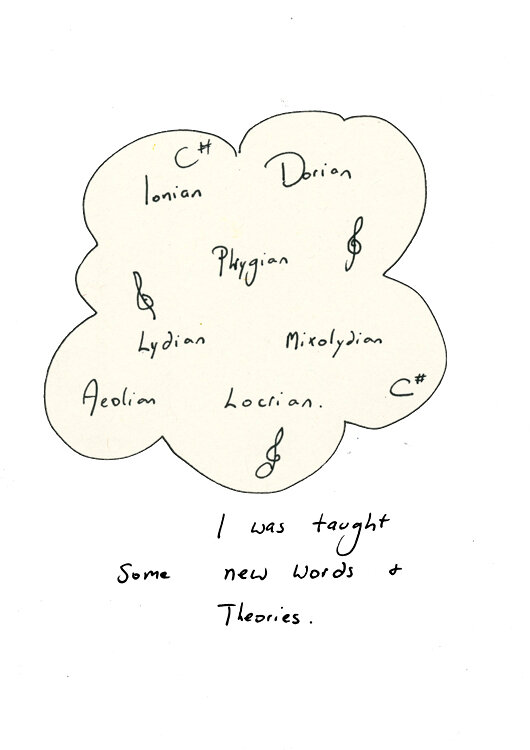 C#
Ionian
Dorian
Phrygian
Lydian
Mixolydian
Aeolian
Locrian.
C#
I was taught
Some new words &
Theories.